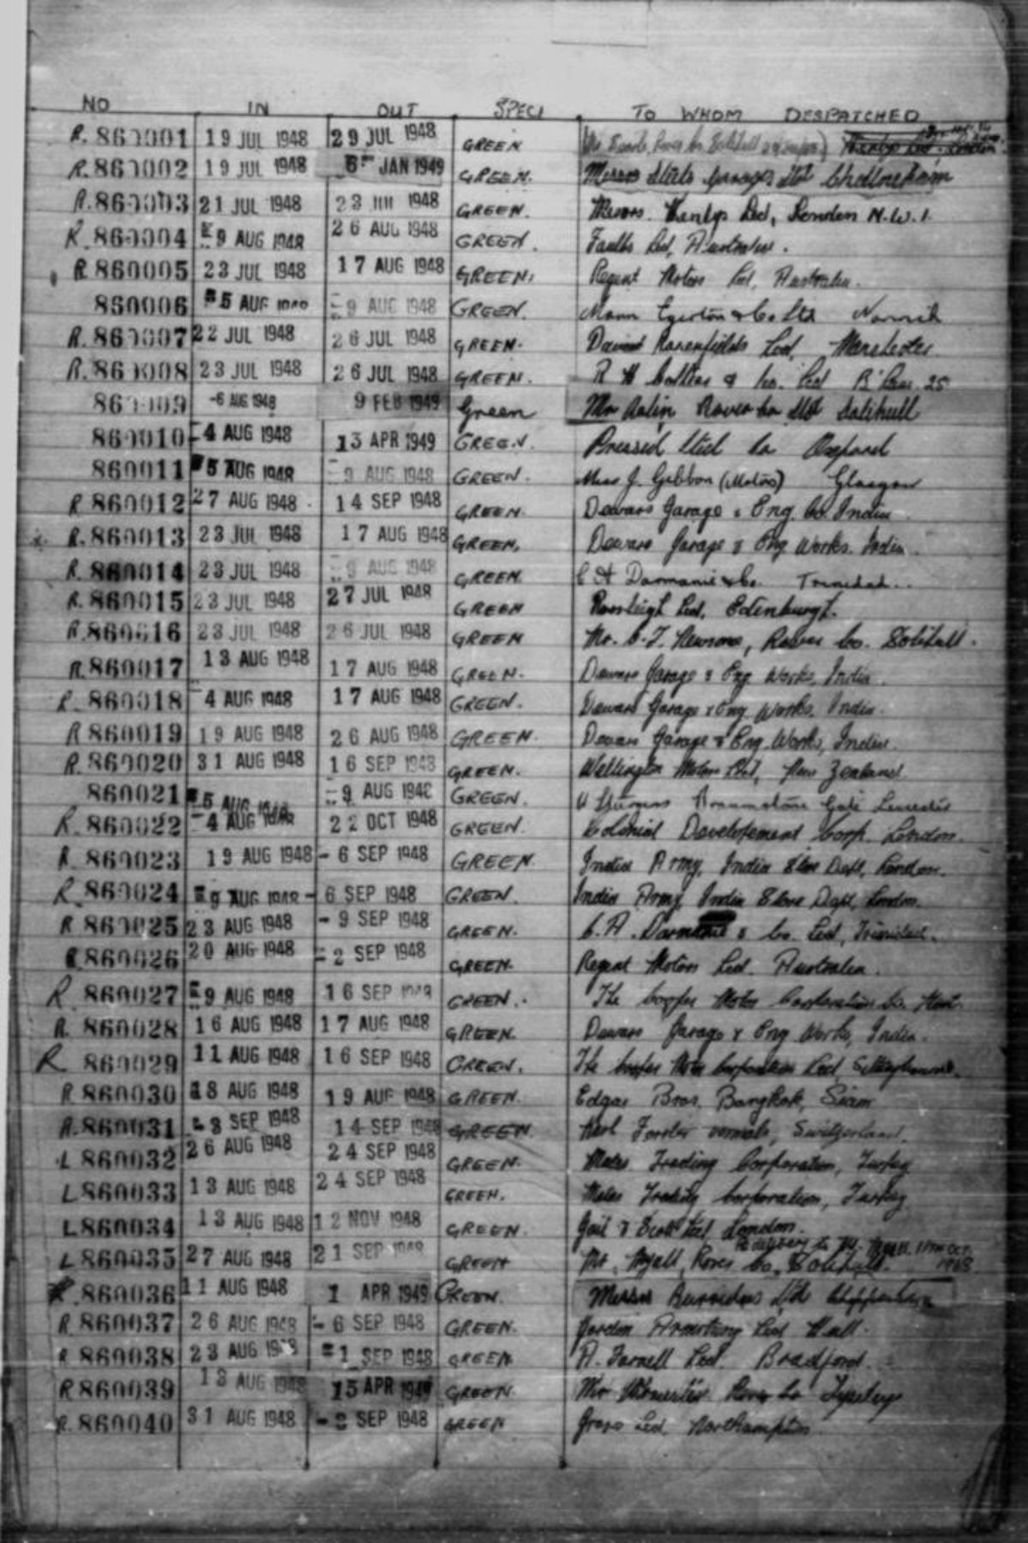 NO IN OUT SPECI TO WHOM DESPATCHED
R. 860001 19 JUL 1948 29 JUL 1948 GREEN
R. 860002 19 JUL 1948 6 JAN 1949 GREEN. Messrs Steels Garages Ltd Cheltenham
R. 860003 21 JUL 1948 23 JUL 1948 GREEN. Messrs. Henlys Ltd, London N.W.1.
R. 860004 9 AUG 1948 26 AUG 1948 GREEN. Faulls Ltd, Australia.
R 860005 23 JUL 1948 17 AUG 1948 GREEN. Regent Motors Ltd, Australia.
860006 5 AUG 1948 -9 AUG 1948 GREEN. Mann Egerton & Co Ltd Norwich
R. 860007 22 JUL 1948 26 JUL 1948 GREEN. David Rosenfields Ltd, Manchester.
R. 860008 23 JUL 1948 26 JUL 1948 GREEN. R H Collier & Co. Ltd B'ham. 25
860009 -6 AUG 1948 9 FEB 1949 Green Mr Rover Co Ltd Solihull
860010 -4 AUG 1948 13 APR 1949 GREEN. Pressed Steel Co Oxford
860011 5 AUG 1948 -9 AUG 1948 GREEN. Miss J. Gibbon (Motors) Glasgow
R 860012 27 AUG 1948 14 SEP 1948 GREEN. Dewars Garage & Eng. Co India
R. 860013 23 JUL 1948 17 AUG 1948 GREEN. Dewars Garage & Eng Works. India.
R. 860014 23 JUL 1948 -9 AUG 1948 GREEN. C A Darmanie & Co. Trinidad..
R. 860015 23 JUL 1948 27 JUL 1948 GREEN Rossleigh Ltd, Edinburgh.
R. 860016 23 JUL 1948 26 JUL 1948 GREEN Mr. C.J. Newsome, Rover Co. Solihull.
R. 860017 13 AUG 1948 17 AUG 1948 GREEN. Dewars Garage & Eng Works, India.
R. 860018 -4 AUG 1948 17 AUG 1948 GREEN. Dewars Garage & Eng Works, India.
R 860019 19 AUG 1948 26 AUG 1948 GREEN. Dewars Garage & Eng. Works, India.
R. 860020 31 AUG 1948 16 SEP 1948 GREEN. Wellington Motors Ltd, New Zealand
860021 5 AUG 1948 -9 AUG 1948 GREEN. Sturgess Gate Leicester
R. 860022 -4 AUG 1948 22 OCT 1948 GREEN. Colonial Developement Corp. London.
R. 860023 19 AUG 1948 - 6 SEP 1948 GREEN. India Army, India Store Dept, London.
R. 860024 9 AUG 1948 - 6 SEP 1948 GREEN. India Army India Store Dept, London.
R 860025 23 AUG 1948 - 9 SEP 1948 GREEN. C.A. Darmanie & Co. Ltd, Trinidad.
R 860026 20 AUG 1948 - 2 SEP 1948 GREEN. Regent Motors Ltd. Australia.
R 860027 9 AUG 1948 16 SEP 1948 GREEN. The Cooper Motor Corporation
R. 860028 16 AUG 1948 17 AUG 1948 GREEN. Dewars Garage & Eng Works, India.
R 860029 11 AUG 1948 16 SEP 1948 GREEN. The Cooper Motor Corporation Ltd
R. 860030 18 AUG 1948 19 AUG 1948 GREEN. Edgar Bros. Bangkok, Siam
R. 860031 -3 SEP 1948 14 SEP 1948 GREEN. Switzerland.
L 860032 26 AUG 1948 24 SEP 1948 GREEN. Motor Trading Corporation, Turkey
L 860033 13 AUG 1948 24 SEP 1948 GREEN. Motor Trading Corporation, Turkey
L 860034 13 AUG 1948 12 NOV 1948 GREEN. Ltd London.
L 860035 27 AUG 1948 21 SEP 1948 GREEN Mr. Myall, Rover Co, Solihull. 1948
R. 860036 11 AUG 1948 1 APR 1949 Green. Messrs Burridges Ltd
R. 860037 26 AUG 1948 - 6 SEP 1948 GREEN. Gordon Armstrong Ltd Hull.
R 860038 23 AUG 1948 1 SEP 1948 GREEN A. Farnell Ltd. Bradford.
R 860039 13 AUG 1948 15 APR 1949 GREEN. Mr Rover Co Tyseley
R. 860040 31 AUG 1948 - 2 SEP 1948 GREEN Grose Ltd. Northampton